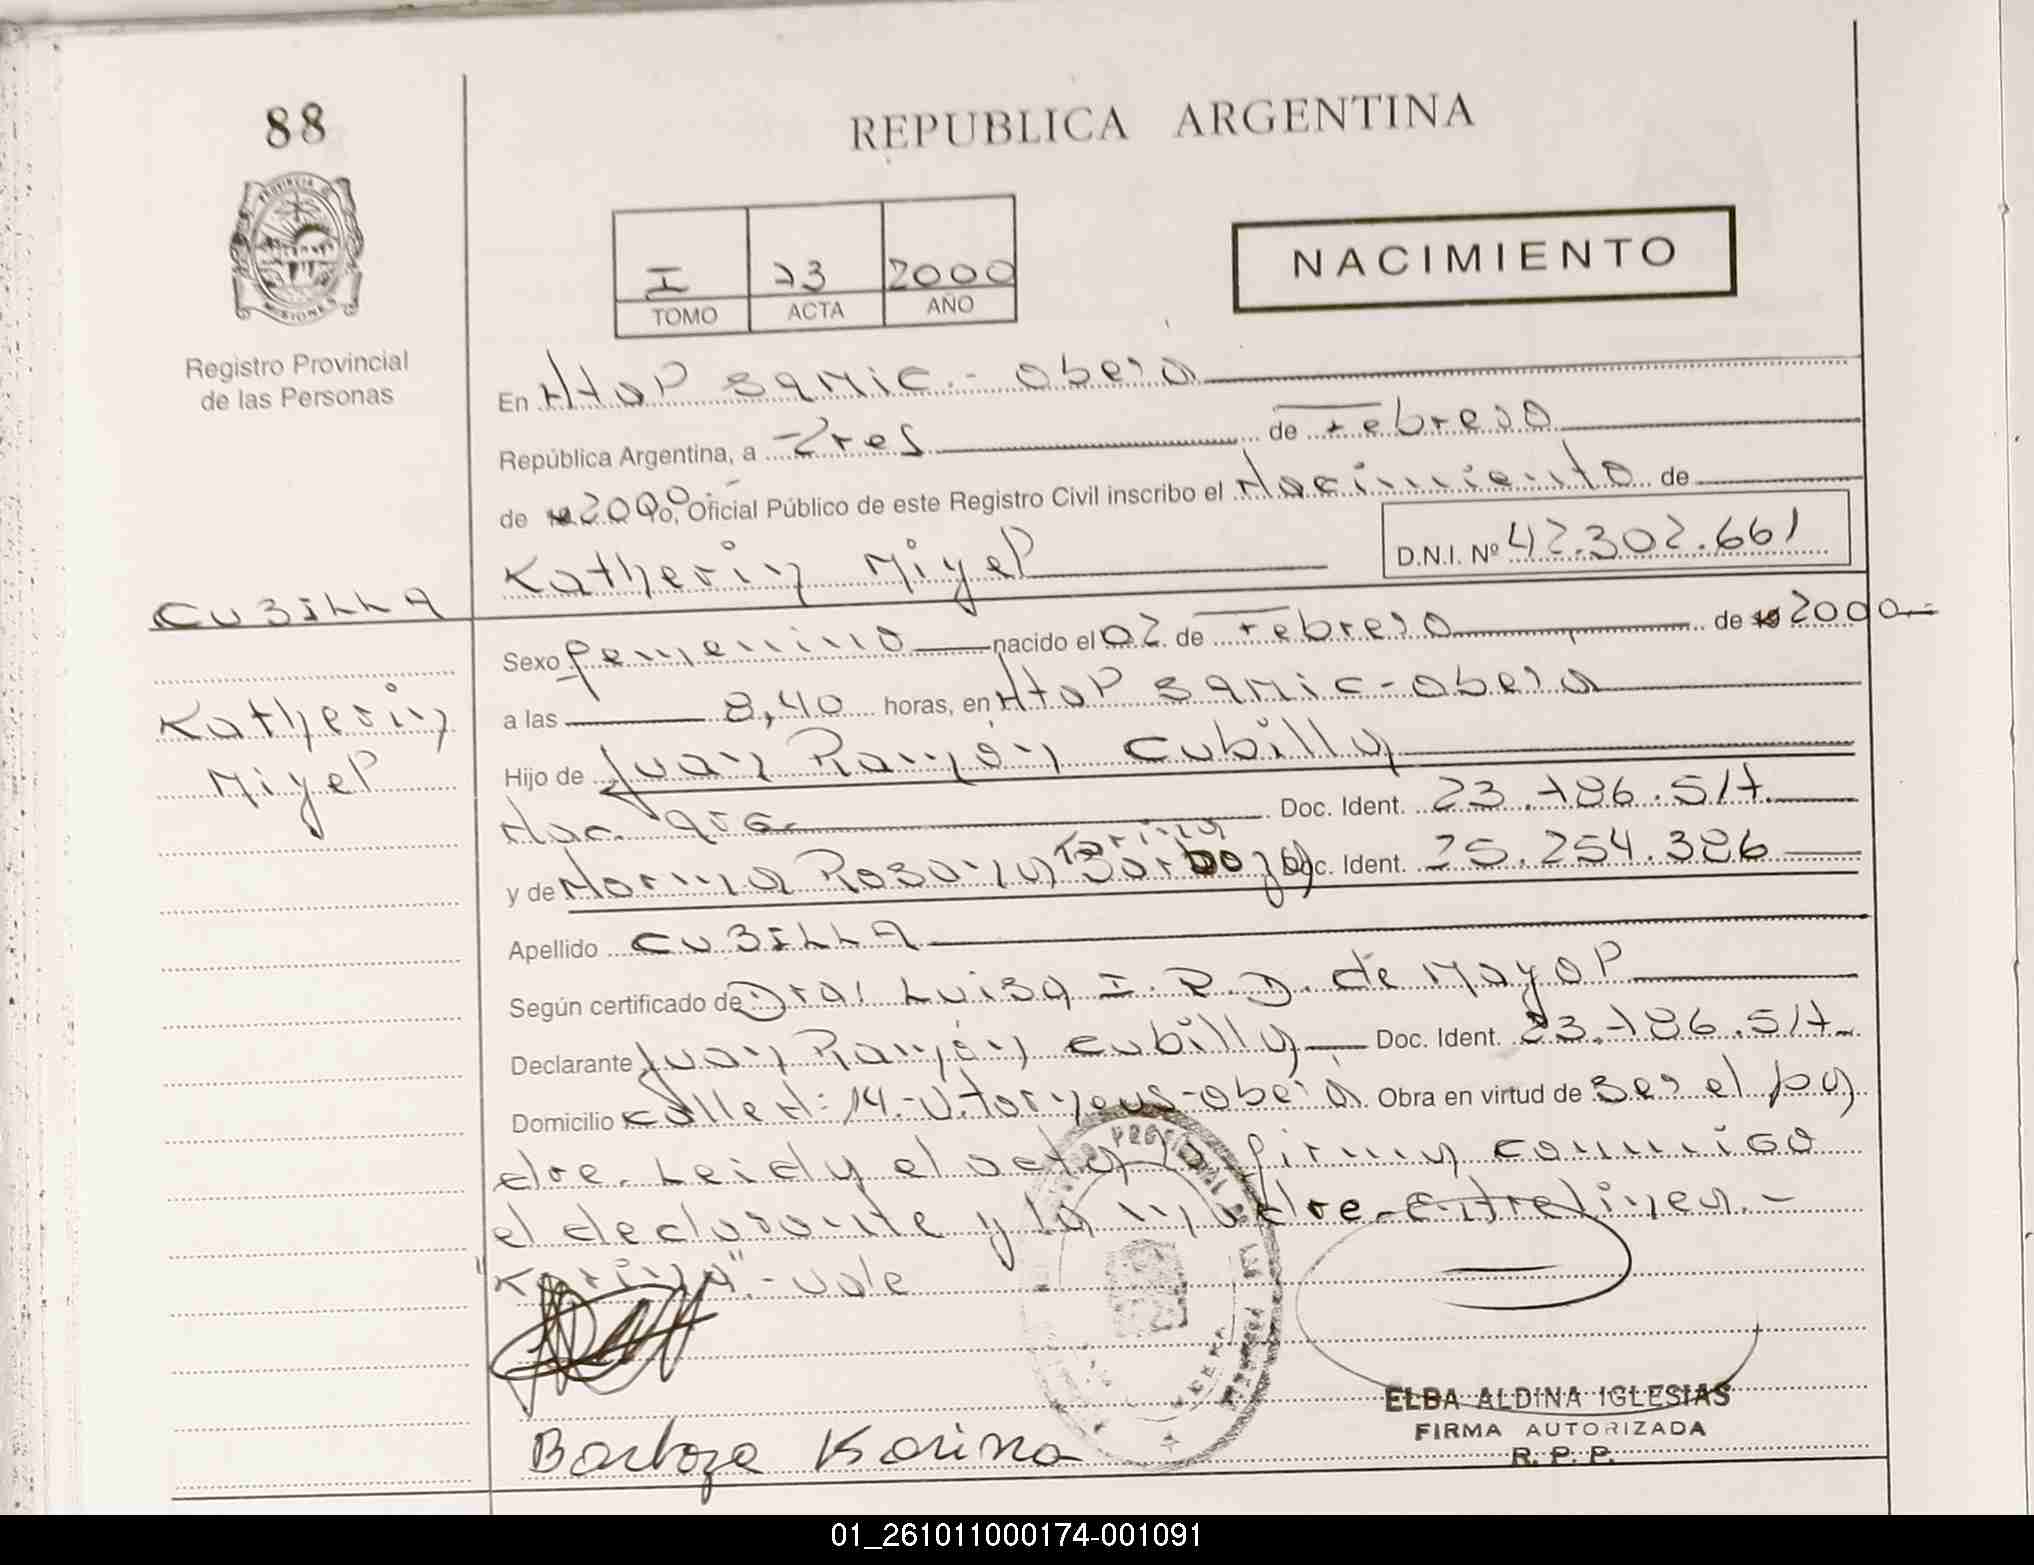 88
REPUBLICA ARGENTINA
PROVINCIA DE
MISIONES
Registro Provincial
de las Personas
I 73 2000
TOMO ACTA AÑO
NACIMIENTO
En Htal Samic.- Oberá
República Argentina, a Tres de Febrero
de 2000 yo, Oficial Público de este Registro Civil inscribo el Nacimiento de
Katherin Miyel
D.N.I. Nº 42.302.661
CUBILLA
Katherin
Miyel
Sexo femenino nacido el 02 de Febrero de 19 2000.-
a las 8,40 horas, en Htal Samic - Oberá
Hijo de Juan Ramón Cubilla
Nac. arg. Doc. Ident. 23.786.517.
Karina
y de Norma Rosana Barboza Doc. Ident. 25.254.386
Apellido CUBILLA
Según certificado de Dra. Luisa I. R. D. de Mayol
Declarante Juan Ramón Cubilla Doc. Ident. 23.786.517.
Domicilio Calle N: 14.- Oberá Obra en virtud de ser el pa
dre. Leida el acta la firma conmigo
el declarante y la madre. Entrelinea.-
"Karina".- vale
Barboza Karina
ELBA ALDINA IGLESIAS
FIRMA AUTORIZADA
R. P. P.
01_261011000174-001091